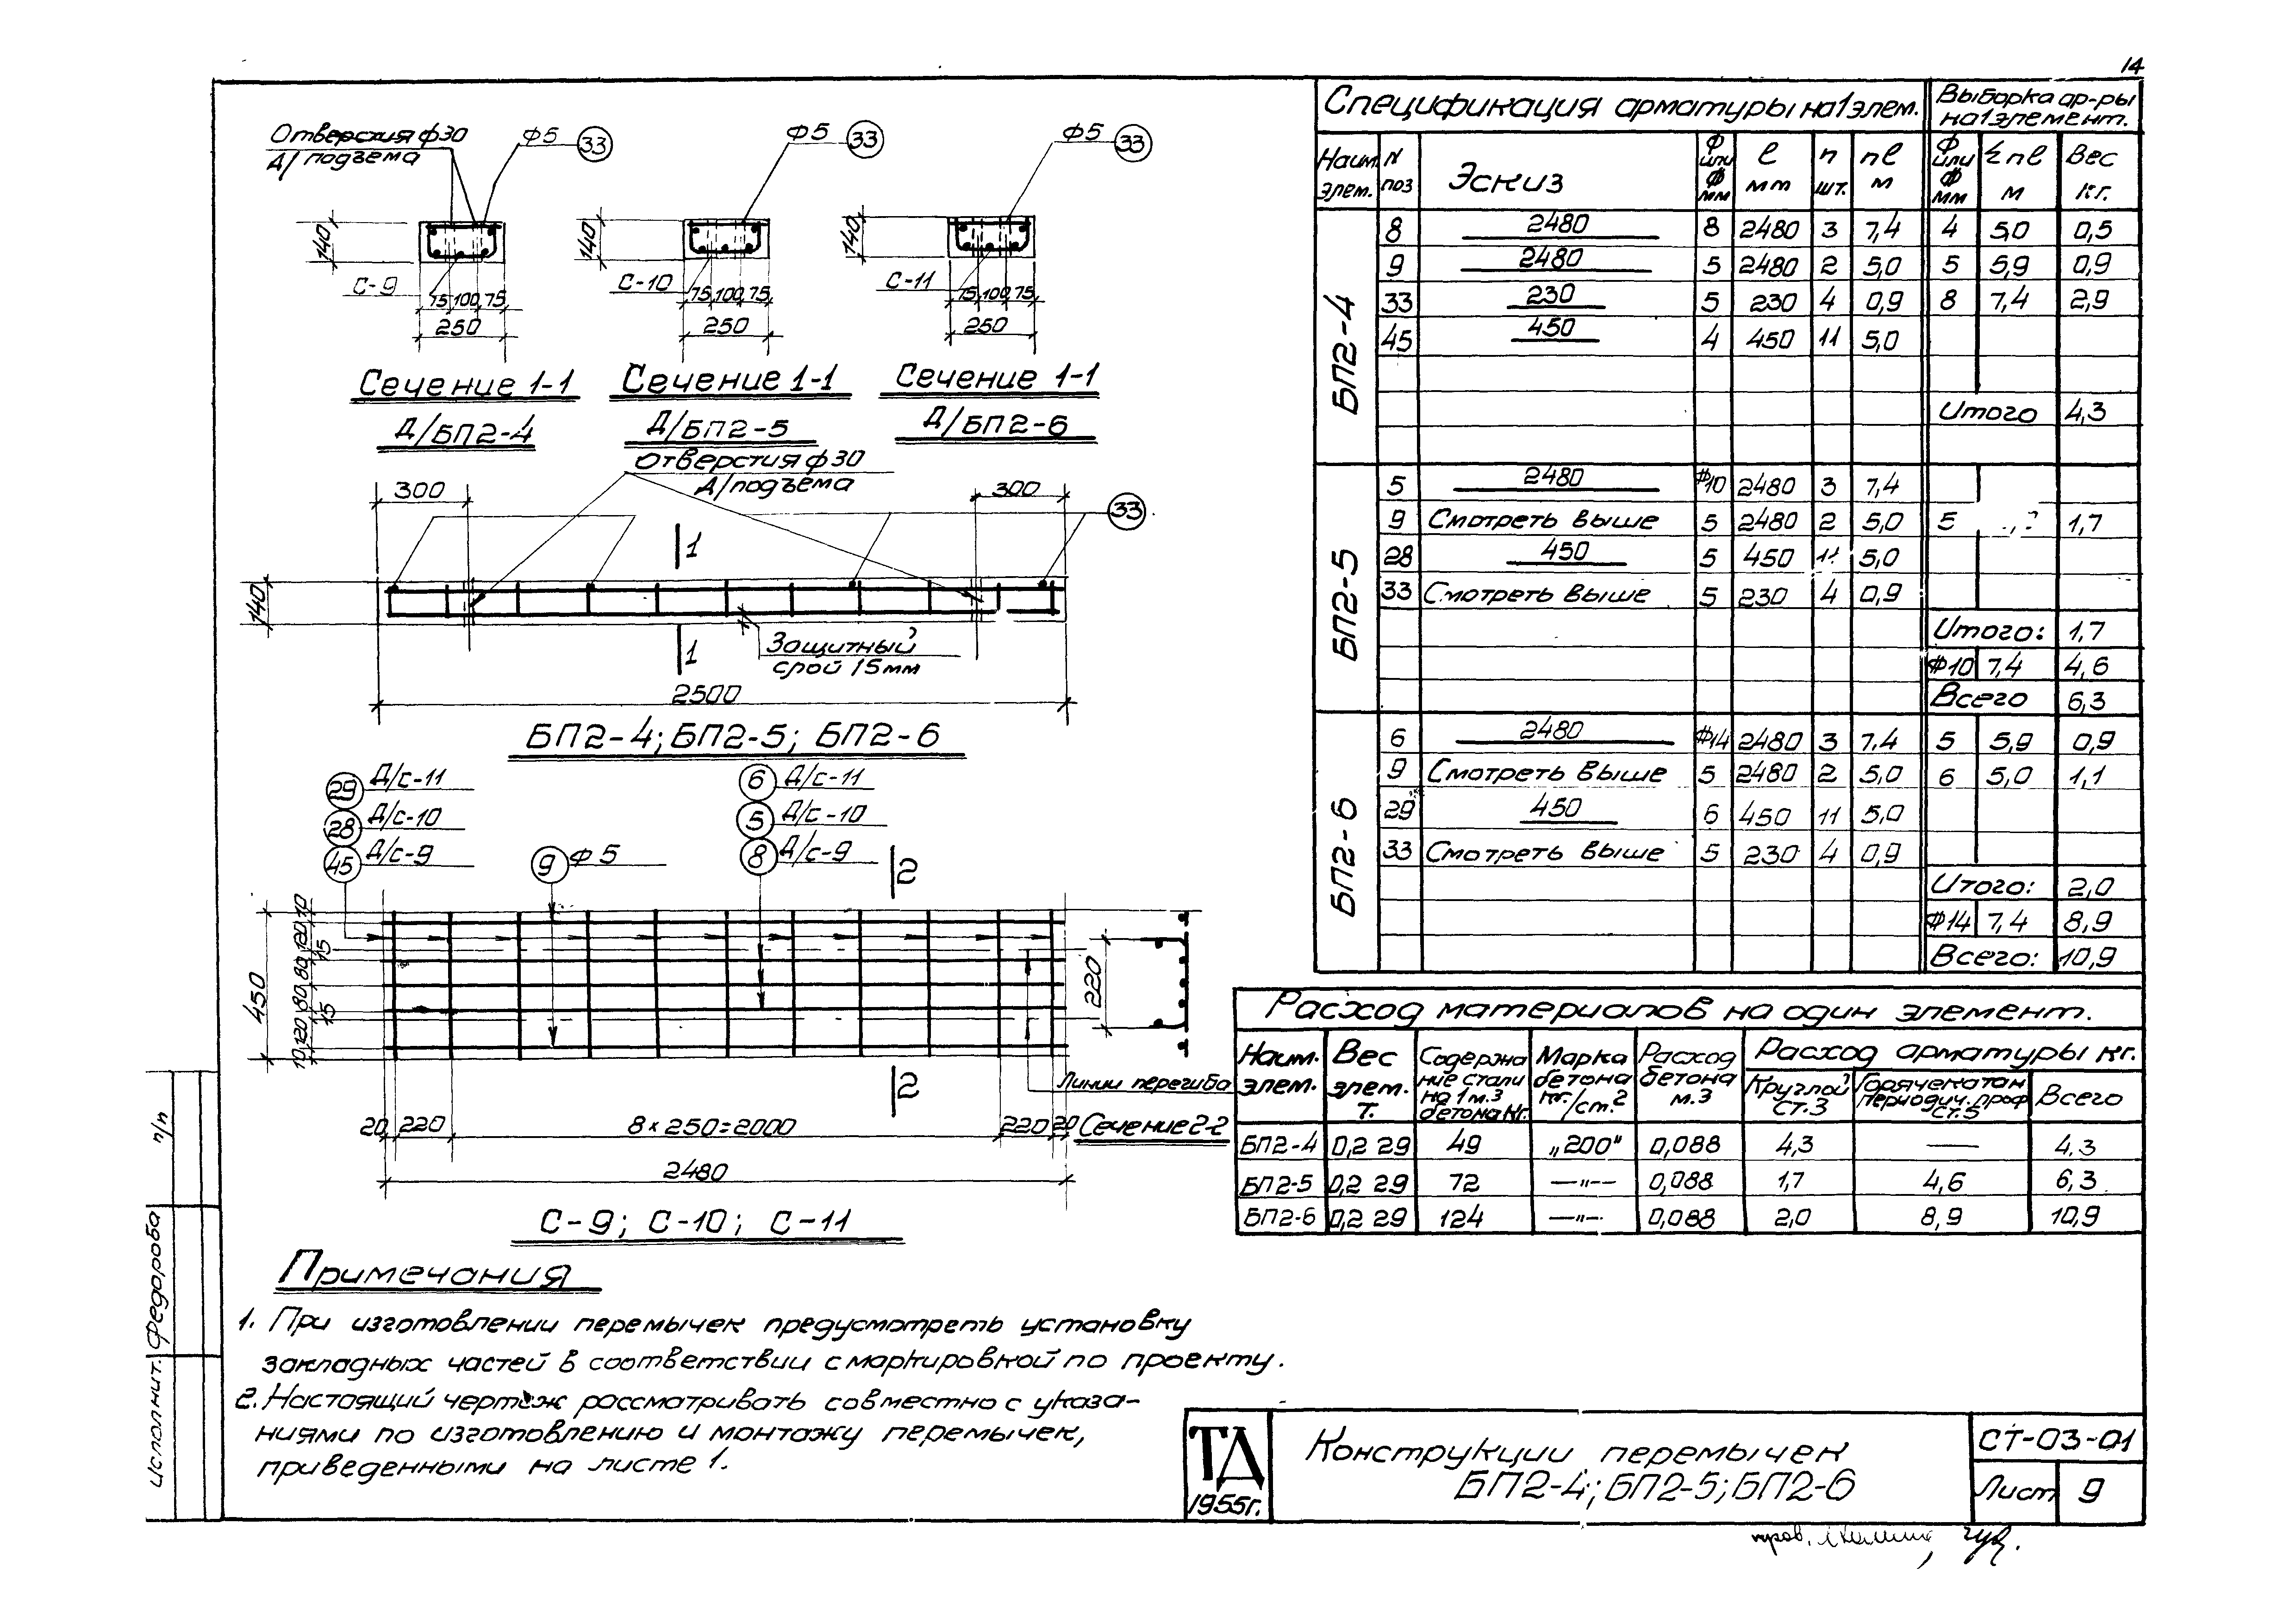 14
Отверстия ф30
Д/подъема
ф5 33
ф5 33
ф5 33
140
140
140
С-9
С-10
С-11
75 100 75
75 100 75
75 100 75
250
250
250
Сечение 1-1
Д/БП2-4
Сечение 1-1
Д/БП2-5
Сечение 1-1
Д/БП2-6
Отверстия ф30
Д/подъема
300
300
33
1
140
1
Защитный
слой 15мм
2500
БП2-4; БП2-5; БП2-6
29 Д/с-11
28 Д/с-10
45 Д/с-9
9 ф5
6 Д/с-11
5 Д/с-10
8 Д/с-9
2
450
10 120 80 80 120 10
15
15
220
2
Линии перегиба
20 220 8×250=2000 220 20
Сечение 2-2
2480
С-9; С-10; С-11
Примечания
1. При изготовлении перемычек предусмотреть установку
закладных частей в соответствии с маркировкой по проекту.
2. Настоящий чертеж рассматривать совместно с указа-
ниями по изготовлению и монтажу перемычек,
приведенными на листе 1.
Спецификация арматуры на 1 элем.
Выборка ар-ры
на 1 элемент.
Наим. элем. N поз Эскиз ф или ф мм ℓ мм n шт. nℓ м ф или ф мм Σnℓ м Вес кг.
БП2-4
8 2480 8 2480 3 7,4 4 5,0 0,5
9 2480 5 2480 2 5,0 5 5,9 0,9
33 230 5 230 4 0,9 8 7,4 2,9
45 450 4 450 11 5,0
Итого 4,3
БП2-5
5 2480 ф10 2480 3 7,4
9 Смотреть выше 5 2480 2 5,0 5 1,7
28 450 5 450 11 5,0
33 Смотреть выше 5 230 4 0,9
Итого: 1,7
ф10 7,4 4,6
Всего 6,3
БП2-6
6 2480 ф14 2480 3 7,4 5 5,9 0,9
9 Смотреть выше 5 2480 2 5,0 6 5,0 1,1
29 450 6 450 11 5,0
33 Смотреть выше 5 230 4 0,9
Итого: 2,0
ф14 7,4 8,9
Всего: 10,9
Расход материалов на один элемент.
Наим. элем. Вес элем. т. Содержание стали на 1 м.3 бетона кг. Марка бетона кг./см.2 Расход бетона м.3 Расход арматуры кг.
Круглой ст.3 Горячекатан периодич. проф ст.5 Всего
БП2-4 0,229 49 „200" 0,088 4,3 — 4,3
БП2-5 0,229 72 —"— 0,088 1,7 4,6 6,3
БП2-6 0,229 124 —"— 0,088 2,0 8,9 10,9
п/п
Исполнит. Федорова
ТД
1955г.
Конструкции перемычек
БП2-4; БП2-5; БП2-6
СТ-03-01
Лист 9
пров.